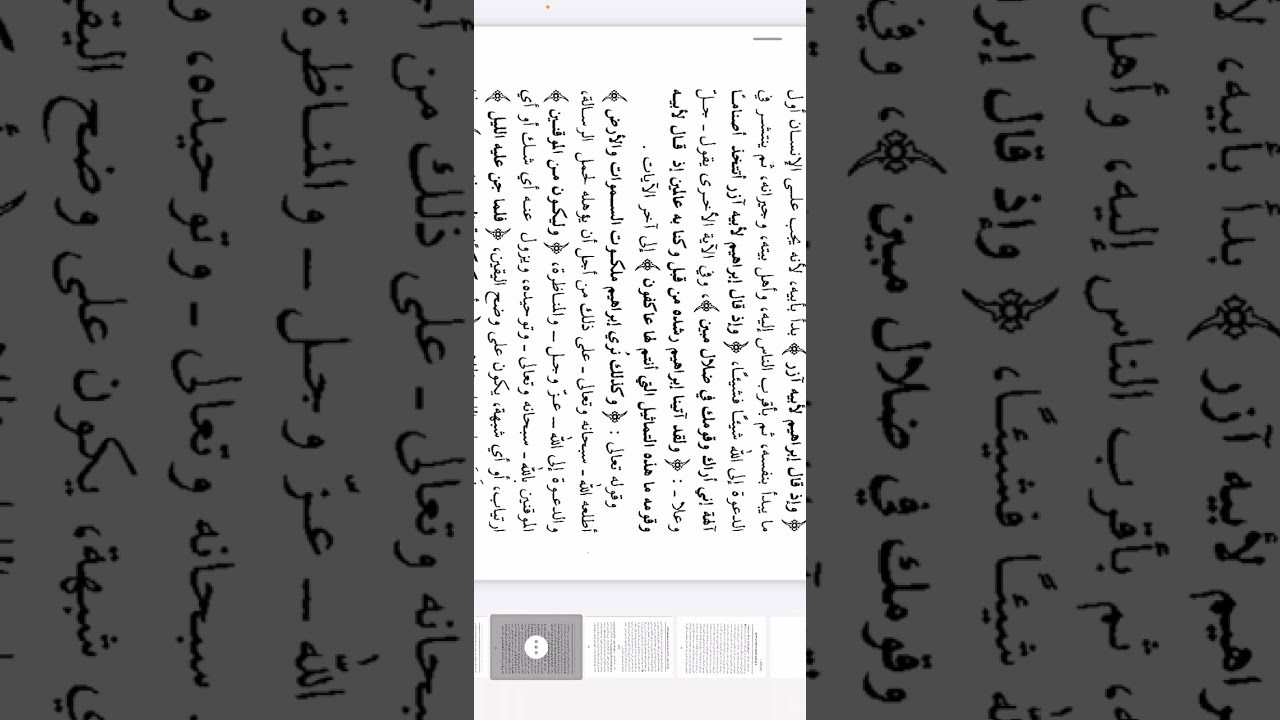 ﴿ وإذ قال إبراهيم لأبيه آزر ﴾ بدأ بأبيه، لأنه يجب على الإنسان أول
ما يبدأ بنفسه، ثم بأقرب الناس إليه، وأهل بيته، وجيرانه، ثم ينتشر في
الدعوة إلى الله شيئًا فشيئًا، ﴿ وإذ قال إبراهيم لأبيه آزر أتتخذ أصنامًا
آلهة إني أراك وقومك في ضلال مبين ﴾، وفي الآية الأخرى يقول - جلّ
وعلا - : ﴿ ولقد آتينا إبراهيم رشده من قبل وكنا به عالمين إذ قال لأبيه
وقومه ما هذه التماثيل التي أنتم لها عاكفون ﴾ إلى آخر الآيات .
وقوله تعالى : ﴿ وكذلك نُري إبراهيم ملكوت السموات والأرض ﴾
أطلعه الله - سبحانه وتعالى - على ذلك من أجل أن يؤهله لحمل الرسالة،
والدعوة إلى الله – عزّ وجل – والمناظرة، ﴿ وليكون من الموقنين ﴾
الموقنين بالله - سبحانه وتعالى - وتوحيده، ويزول عنه أي شك أو أي
ارتياب، أو أي شبهة، يكون على وضح اليقين، ﴿ فلما جن عليه الليل ﴾